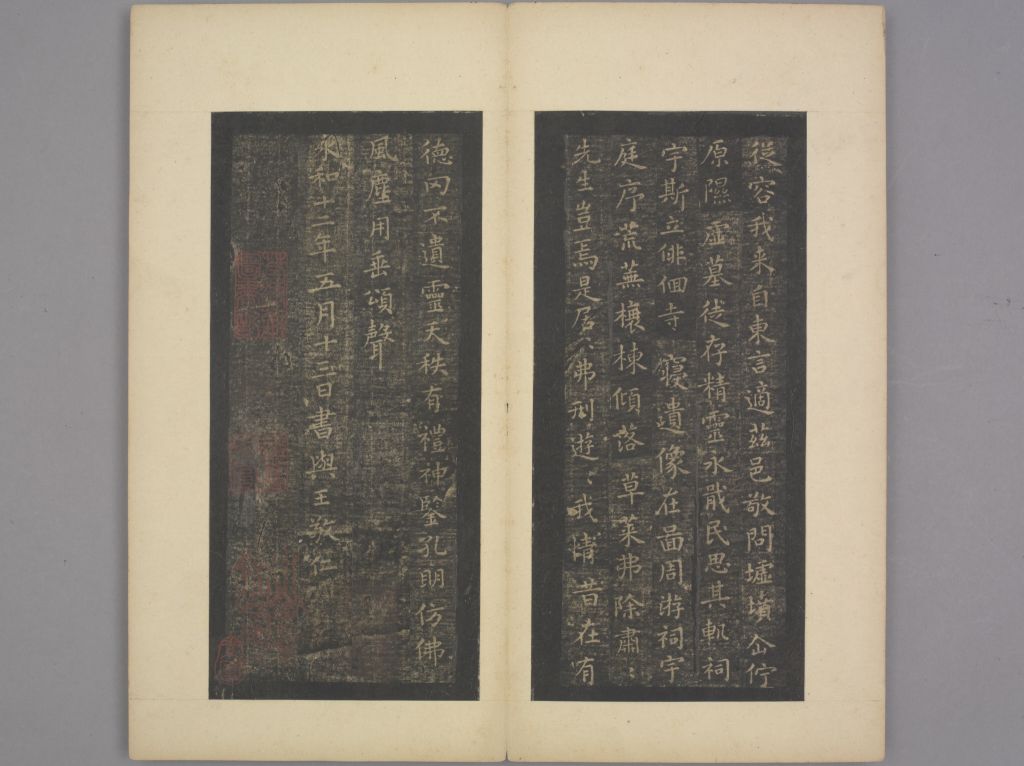 從容我来自東言適茲邑敬問墟墳企佇
原隰虛墓徒存精靈永戢民思其軌祠
宇斯立俳佪寺寢遺像在啚周游祠宇
庭序荒蕪榱棟傾落草萊弗除肅〻
先生豈焉是居〻弗刑遊〻我情昔在有
德罔不遺靈天秩有禮神鑒孔明仿佛
風塵用垂頌聲
永和十二年五月十三日書與王敬仁